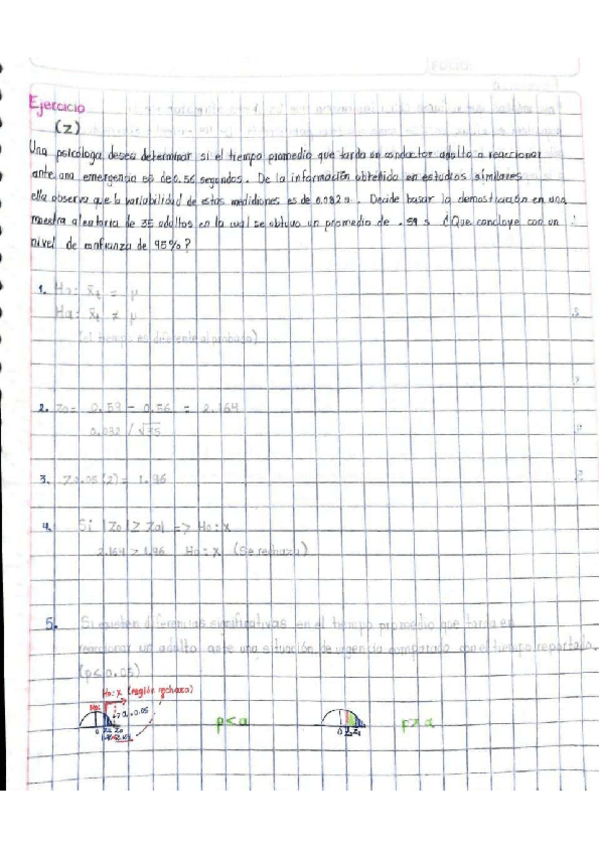 Ejercicio
(z)
Una psicóloga desea determinar si el tiempo promedio que tarda un conductor adulto a reaccionar
ante una emergencia es de 0.56 segundos. De la información obtenida en estudios similares
ella observa que la variabilidad de estas mediciones es de 0.082 s. Decide basar la demostración en una
muestra aleatoria de 35 adultos en la cual se obtuvo un promedio de .59 s ¿Que concluye con un
nivel de confianza de 95%?
1. Ho: x̄₁ = μ
Ha: x̄₁ ≠ μ
(el tiempo es diferente al
2. Zo = 0.59 - 0.56 = 2.164
0.082 / √35
3. Z0.05(2) = 1.96
4. Si |Zo| ≥ Zα| => Ho: x
2.164 > 1.96 Ho: x (Se rechaza)
5. Si existen diferencias significativas en el tiempo promedio que tarda en
reaccionar un adulto ante una situación de urgencia comparado con el tiempo reportado.
(p<0.05)
Ho: x (región rechazo)
α=0.05
p<α
p>α